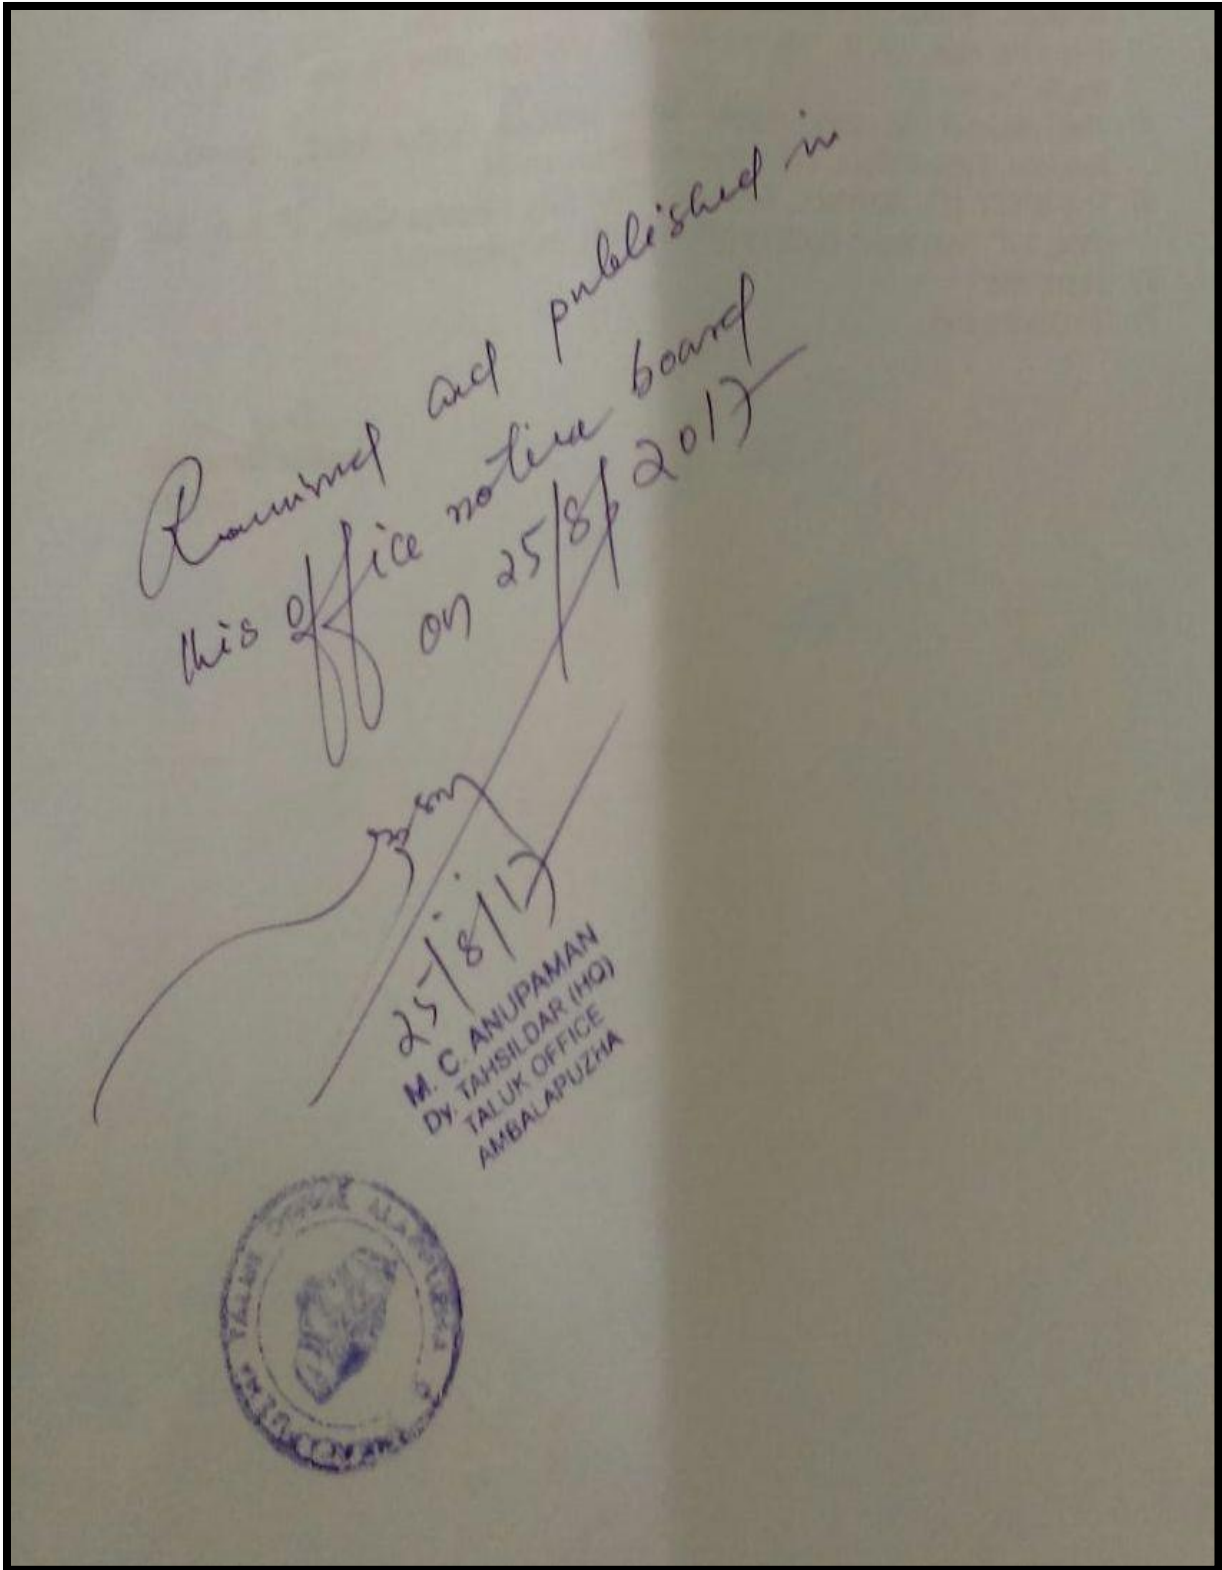 Received and published in
this office notice board
on 25/8/2017
25/8/17
M. C. ANUPAMAN
Dy. TAHSILDAR (HQ)
TALUK OFFICE
AMBALAPUZHA
TALUK ALAPPUZHA